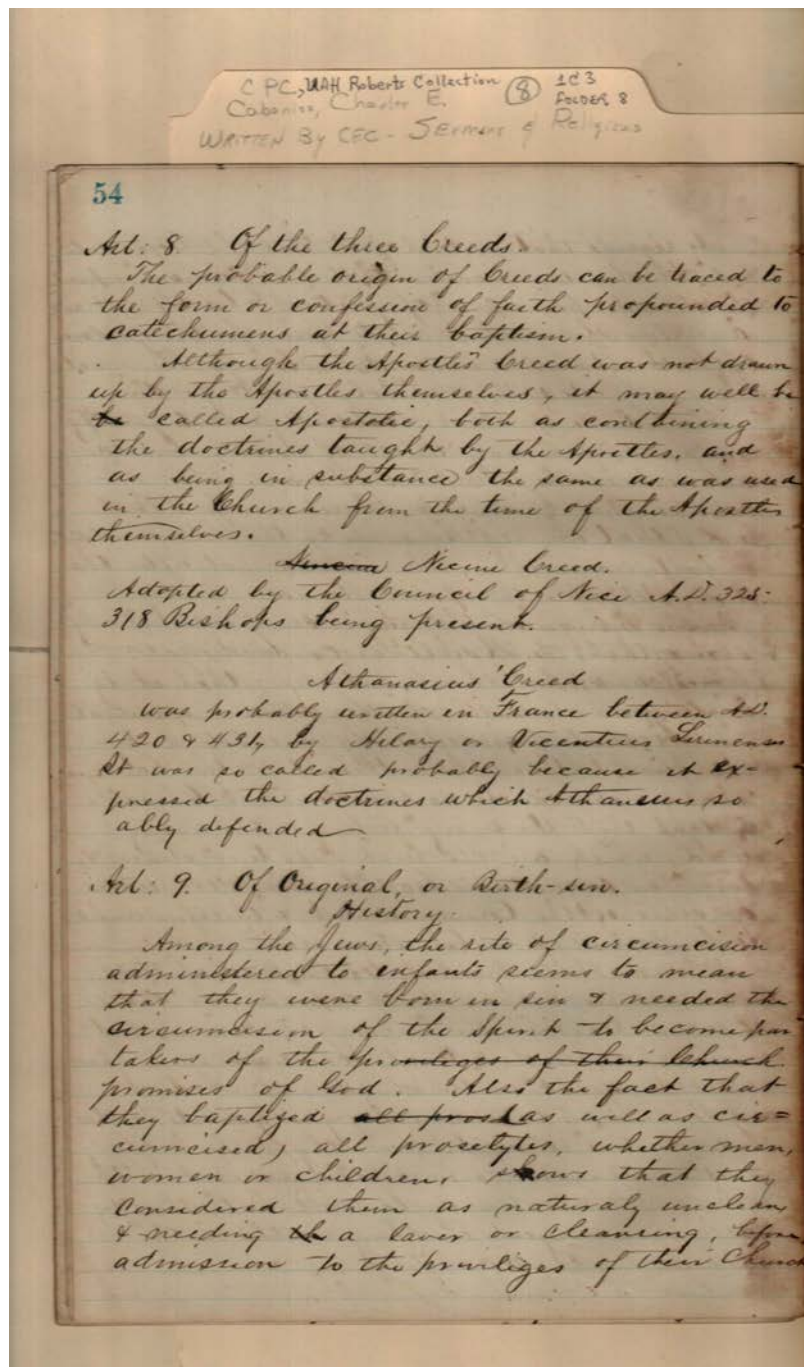 C PC, UAH Roberts Collection 8 1 of 3
Cabaniss, Charles E. FOLDER 8
WRITTEN By CEC - Sermons & Religious
54
Art: 8. Of the three Creeds.
The probable origin of Creeds can be traced to
the form or confession of faith propounded to
catechumens at their baptism.
Although the Apostles' Creed was not drawn
up by the Apostles themselves, it may well be
be called Apostolic, both as containing
the doctrines taught by the Apostles, and
as being in substance the same as was used
in the Church from the time of the Apostles
themselves.
Nicene Creed.
Adopted by the Council of Nice A.D. 325.
318 Bishops being present.
Athanasius' Creed
was probably written in France between A.D.
420 & 431, by Hilary or Vicentius Lirinensis
It was so called probably because it ex-
pressed the doctrines which Athanasius so
ably defended
Art: 9. Of Original, or Birth-sin.
History.
Among the Jews, the rite of circumcision
administered to infants seems to mean
that they were born in sin & needed the
circumcision of the Spirit to become par
takers of the privileges of their Church
promises of God. Also the fact that
they baptized all pros (as well as cir=
cumcised) all proselytes, whether men,
women or children, shows that they
considered them as naturaly unclean,
& needing th a laver or cleansing, before
admission to the privileges of their Church